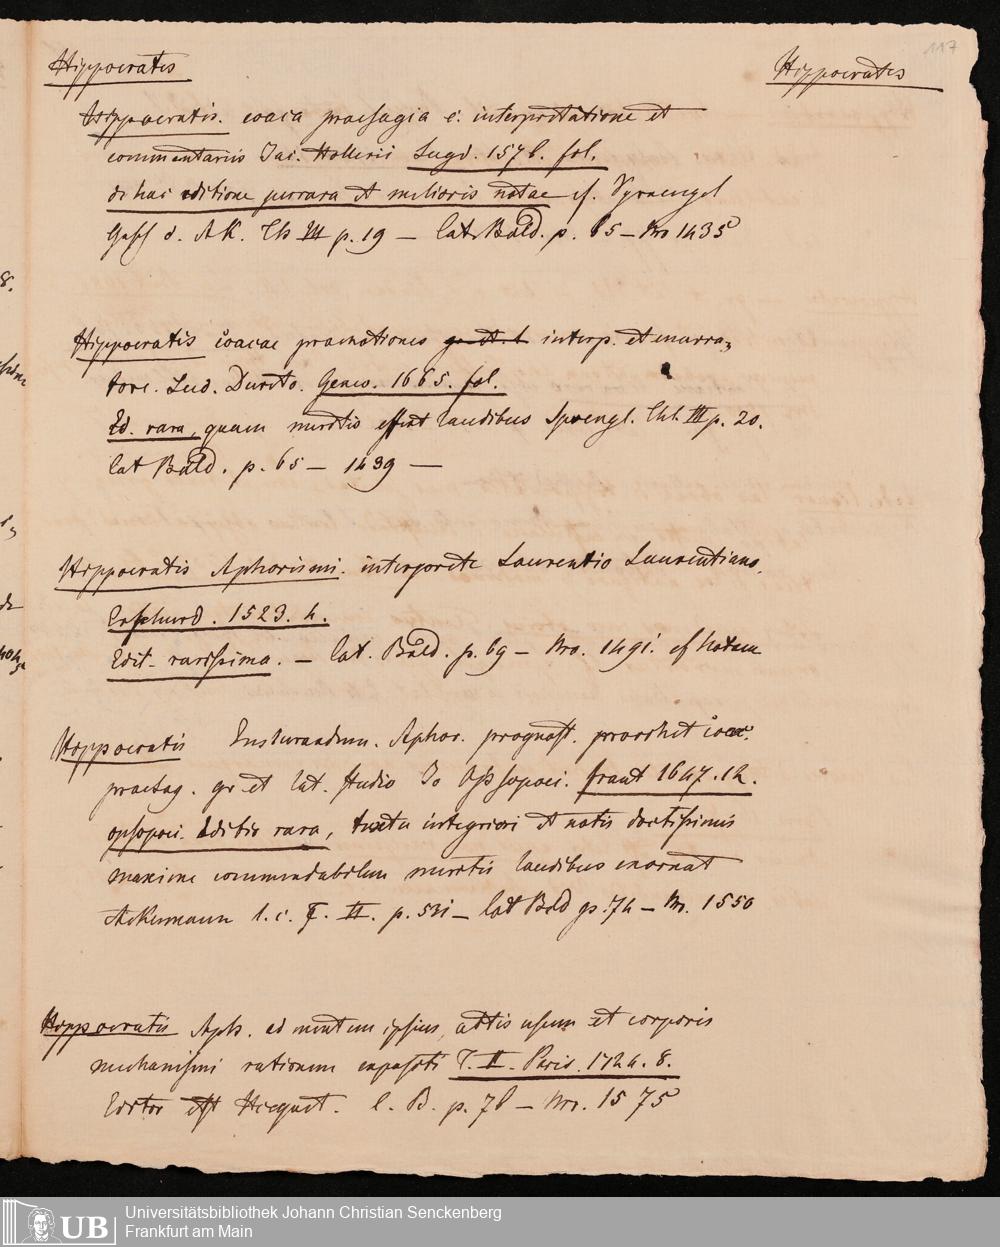 117
Hippocratis Hippocrates
Hippocratis. coaca praesagia c. interpretatione et
commentariis Jac. Hollerii Lugd. 1576. fol.
de hac editione perrara et melioris notae cf. Sprengel
Gesch d. AK. Th III p. 19 — Cat. Bald. p. 65 — Nro 1435
Hippocratis coacae praenotiones gr. et l interp. et enarra-
tore. Lud. Dureto. Genev. 1665. fol.
Ed. rara, quam meritis effert laudibus Sprengl. Thl. III p. 20.
Cat Bald. p. 65 — 1439 —
Hippocratis Aphorismi. interprete Laurentio Laurentiano.
Erphurd. 1523. 4.
Edit. rarissima. — Cat. Bald. p. 69 — Nro. 1491. cf Notam
Hippocratis Jusiurandum. Aphor. prognost. prorrhet coac.
praesag. gr et lat. studio Jo Opsopoei. Francf 1647. 12.
opsopoei. Editio rara, textu integriori et notis doctissimis
maxime commendabilem meritis laudibus exornat
Ackermann l. c. T. II. p. 531 — Cat Bald p. 74 — Nr. 1550
Hippocratis Aph. ad mentem ipsius, artis usum et corporis
mechanismi rationem expositi T. II. Paris. 1724. 8.
Editor est Hecquet. C. B. p. 76 — Nro. 1575
UB
Universitätsbibliothek Johann Christian Senckenberg
Frankfurt am Main